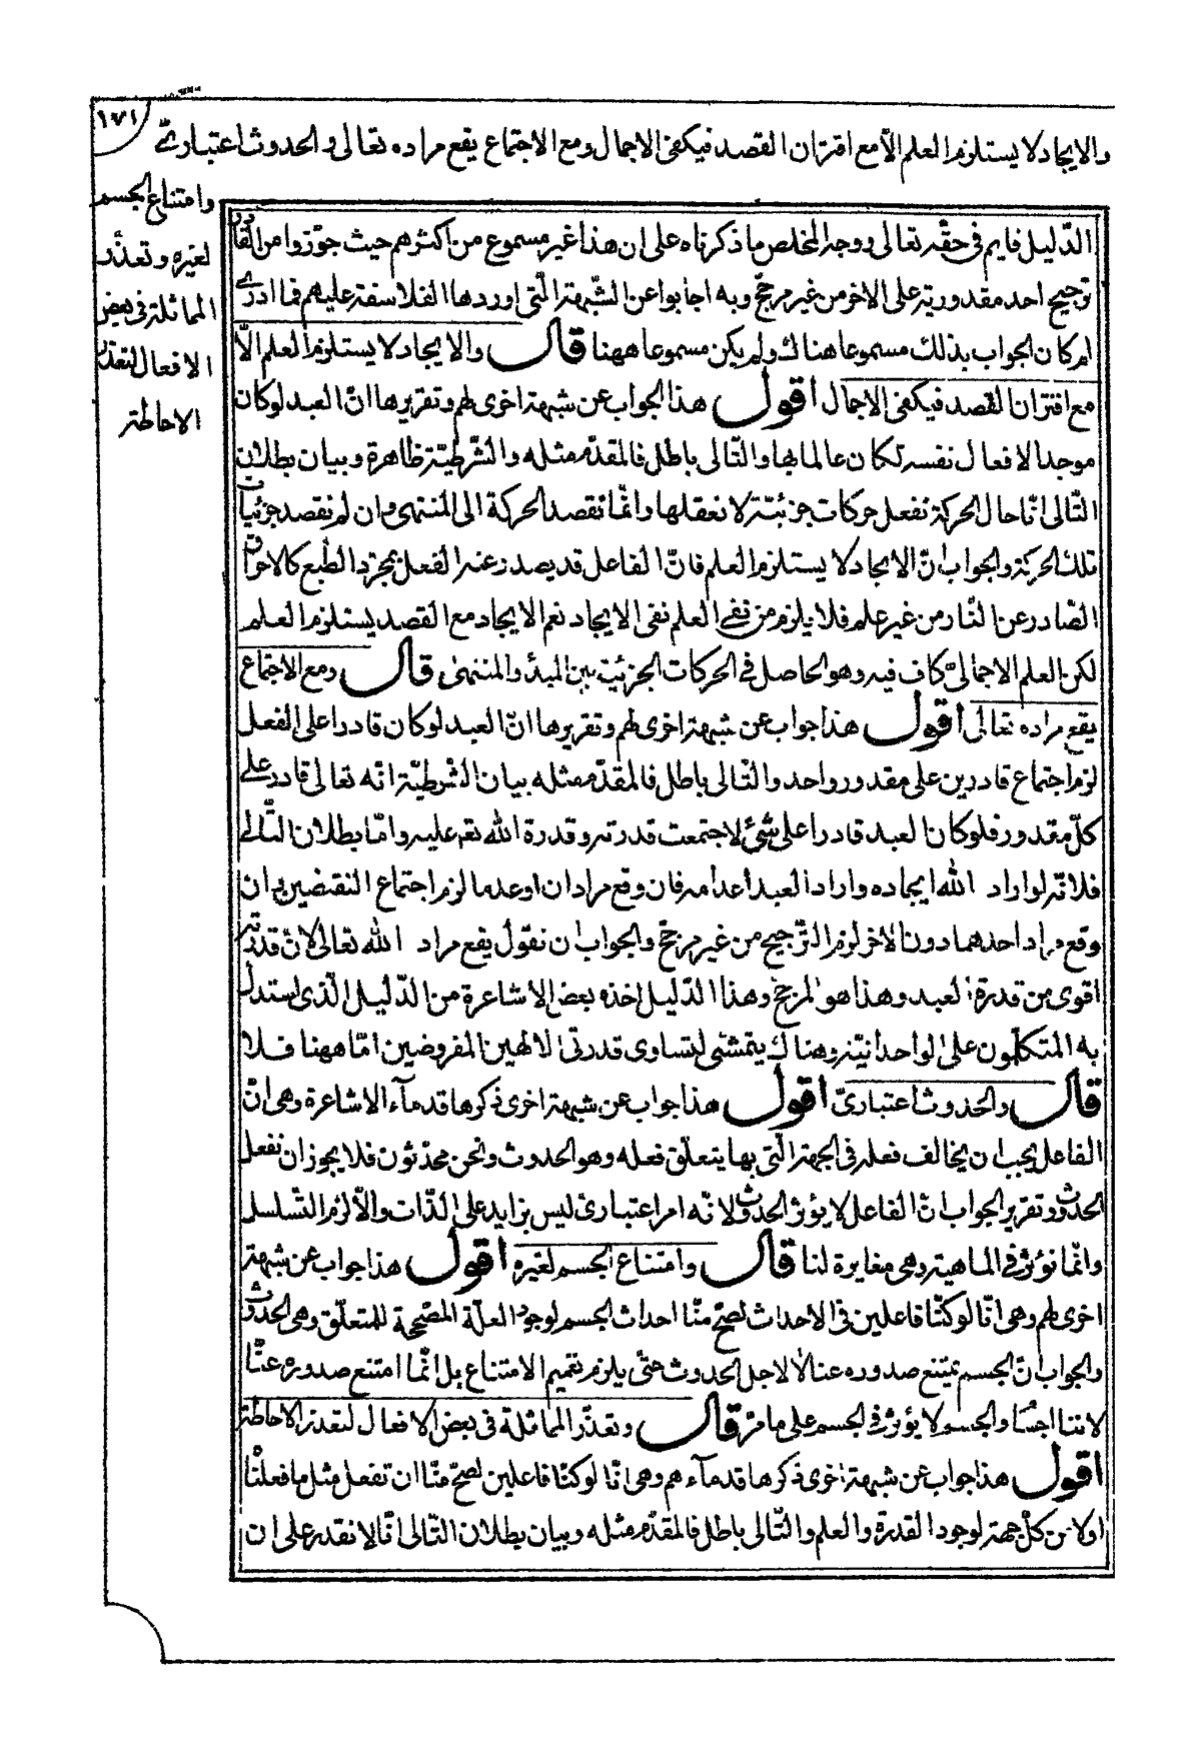 ١٧١
والايجاد لا يستلزم العلم الّا مع اقتران القصد فيكفى الاجمال ومع الاجتماع يقع مراده تعالى والحدوث اعتبارىّ
وامتناع الجسم
لغيره وتعذّر
المماثلة فى بعض
الافعال لتعذّر
الاحاطة
الدّليل قايم فى حقّه تعالى ووجه المخلص ما ذكرناه على ان هذا غير مسموع من اكثرهم حيث جوّزوا من القادر
ترجيح احد مقدوريه على الاخر من غير مرجّح وبه اجابوا عن الشّبهة الّتى اوردها الفلاسفة عليهم فما ادرى
ام كان الجواب بذلك مسموعا هناك ولم يكن مسموعا ههنا قال والايجاد لا يستلزم العلم الّا
مع اقتران القصد فيكفى الاجمال اقول هذا الجواب عن شبهة اخرى لهم وتقريرها انّ العبد لو كان
موجدا لافعال نفسه لكان عالما بها والتّالى باطل فالمقدّم مثله والشّرطيّة ظاهرة وبيان بطلان
التّالى انّا حال الحركة نفعل حركات جزئيّة لا نعقلها وانّما نقصد الحركة الى المنتهى وان لم نقصد جزئيات
تلك الحركة والجواب انّ الايجاد لا يستلزم العلم فانّ الفاعل قد يصدر عنه الفعل بمجرّد الطّبع كالاحراق
الصّادر عن النّار من غير علم فلا يلزم من نفى العلم نفى الايجاد نعم الايجاد مع القصد يستلزم العلم
لكن العلم الاجمالىّ كاف فيه وهو الحاصل فى الحركات الجزئيّة بين المبدأ والمنتهى قال ومع الاجتماع
يقع مراده تعالى اقول هذا جواب عن شبهة اخرى لهم وتقريرها انّ العبد لو كان قادرا على الفعل
لزم اجتماع قادرين على مقدور واحد والتّالى باطل فالمقدّم مثله بيان الشّرطيّة انه تعالى قادر على
كلّ مقدور فلو كان العبد قادرا على شئ لاجتمعت قدرته وقدرة الله تع عليه وامّا بطلان التّالى
فلانّه لو اراد الله ايجاده واراد العبد اعدامه فان وقع مرادان او عدما لزم اجتماع النقيضين وان
وقع مراد احدهما دون الاخر لزم التّرجيح من غير مرجّح والجواب ان نقول يقع مراد الله تعالى لانّ قدرته
اقوى من قدرة العبد وهذا هو المرجّح وهذا الدّليل اخذه بعض الاشاعرة من الدّليل الّذى استدل
به المتكلّمون على الواحدانيّة وهناك يتمشّى لتساوى قدرتى الالهين المفروضين امّا ههنا فلا
قال والحدوث اعتبارىّ اقول هذا جواب عن شبهة اخرى ذكرها قدماء الاشاعرة وهى انّ
الفاعل يجب ان يخالف فعله فى الجهة الّتى بها يتعلّق فعله وهو الحدوث ونحن محدثون فلا يجوز ان نفعل
الحدوث وتقرير الجواب انّ الفاعل لا يؤثر الحدوث لانّه امر اعتبارىّ ليس بزايد على الذّات والّا لزم التّسلسل
وانّما نؤثر فى الماهية وهى مغايرة لنا قال وامتناع الجسم لغيره اقول هذا جواب عن شبهة
اخرى لهم وهى انّا لو كنّا فاعلين فى الاحداث لصحّ منّا احداث الجسم لوجود العلّة المصّححة للمتعلّق وهى الحدوث
والجواب انّ الجسم يمتنع صدوره عنا لا لاجل الحدوث حتّى يلزم تعميم الامتناع بل انّما امتنع صدوره عنّا
لاننا اجسام والجسم لا يؤثر فى الجسم على ما مرّ قال وتعذّر المماثلة فى بعض الافعال لتعذر الاحاطة
اقول هذا جواب عن شبهة اخرى ذكرها قدماءهم وهى انّا لو كنّا فاعلين لصحّ منّا ان نفعل مثل ما فعلنا
اولا من كلّ جهة لوجود القدرة والعلم والتّالى باطل فالمقدّم مثله وبيان بطلان التّالى انّا لا نقدر على ان